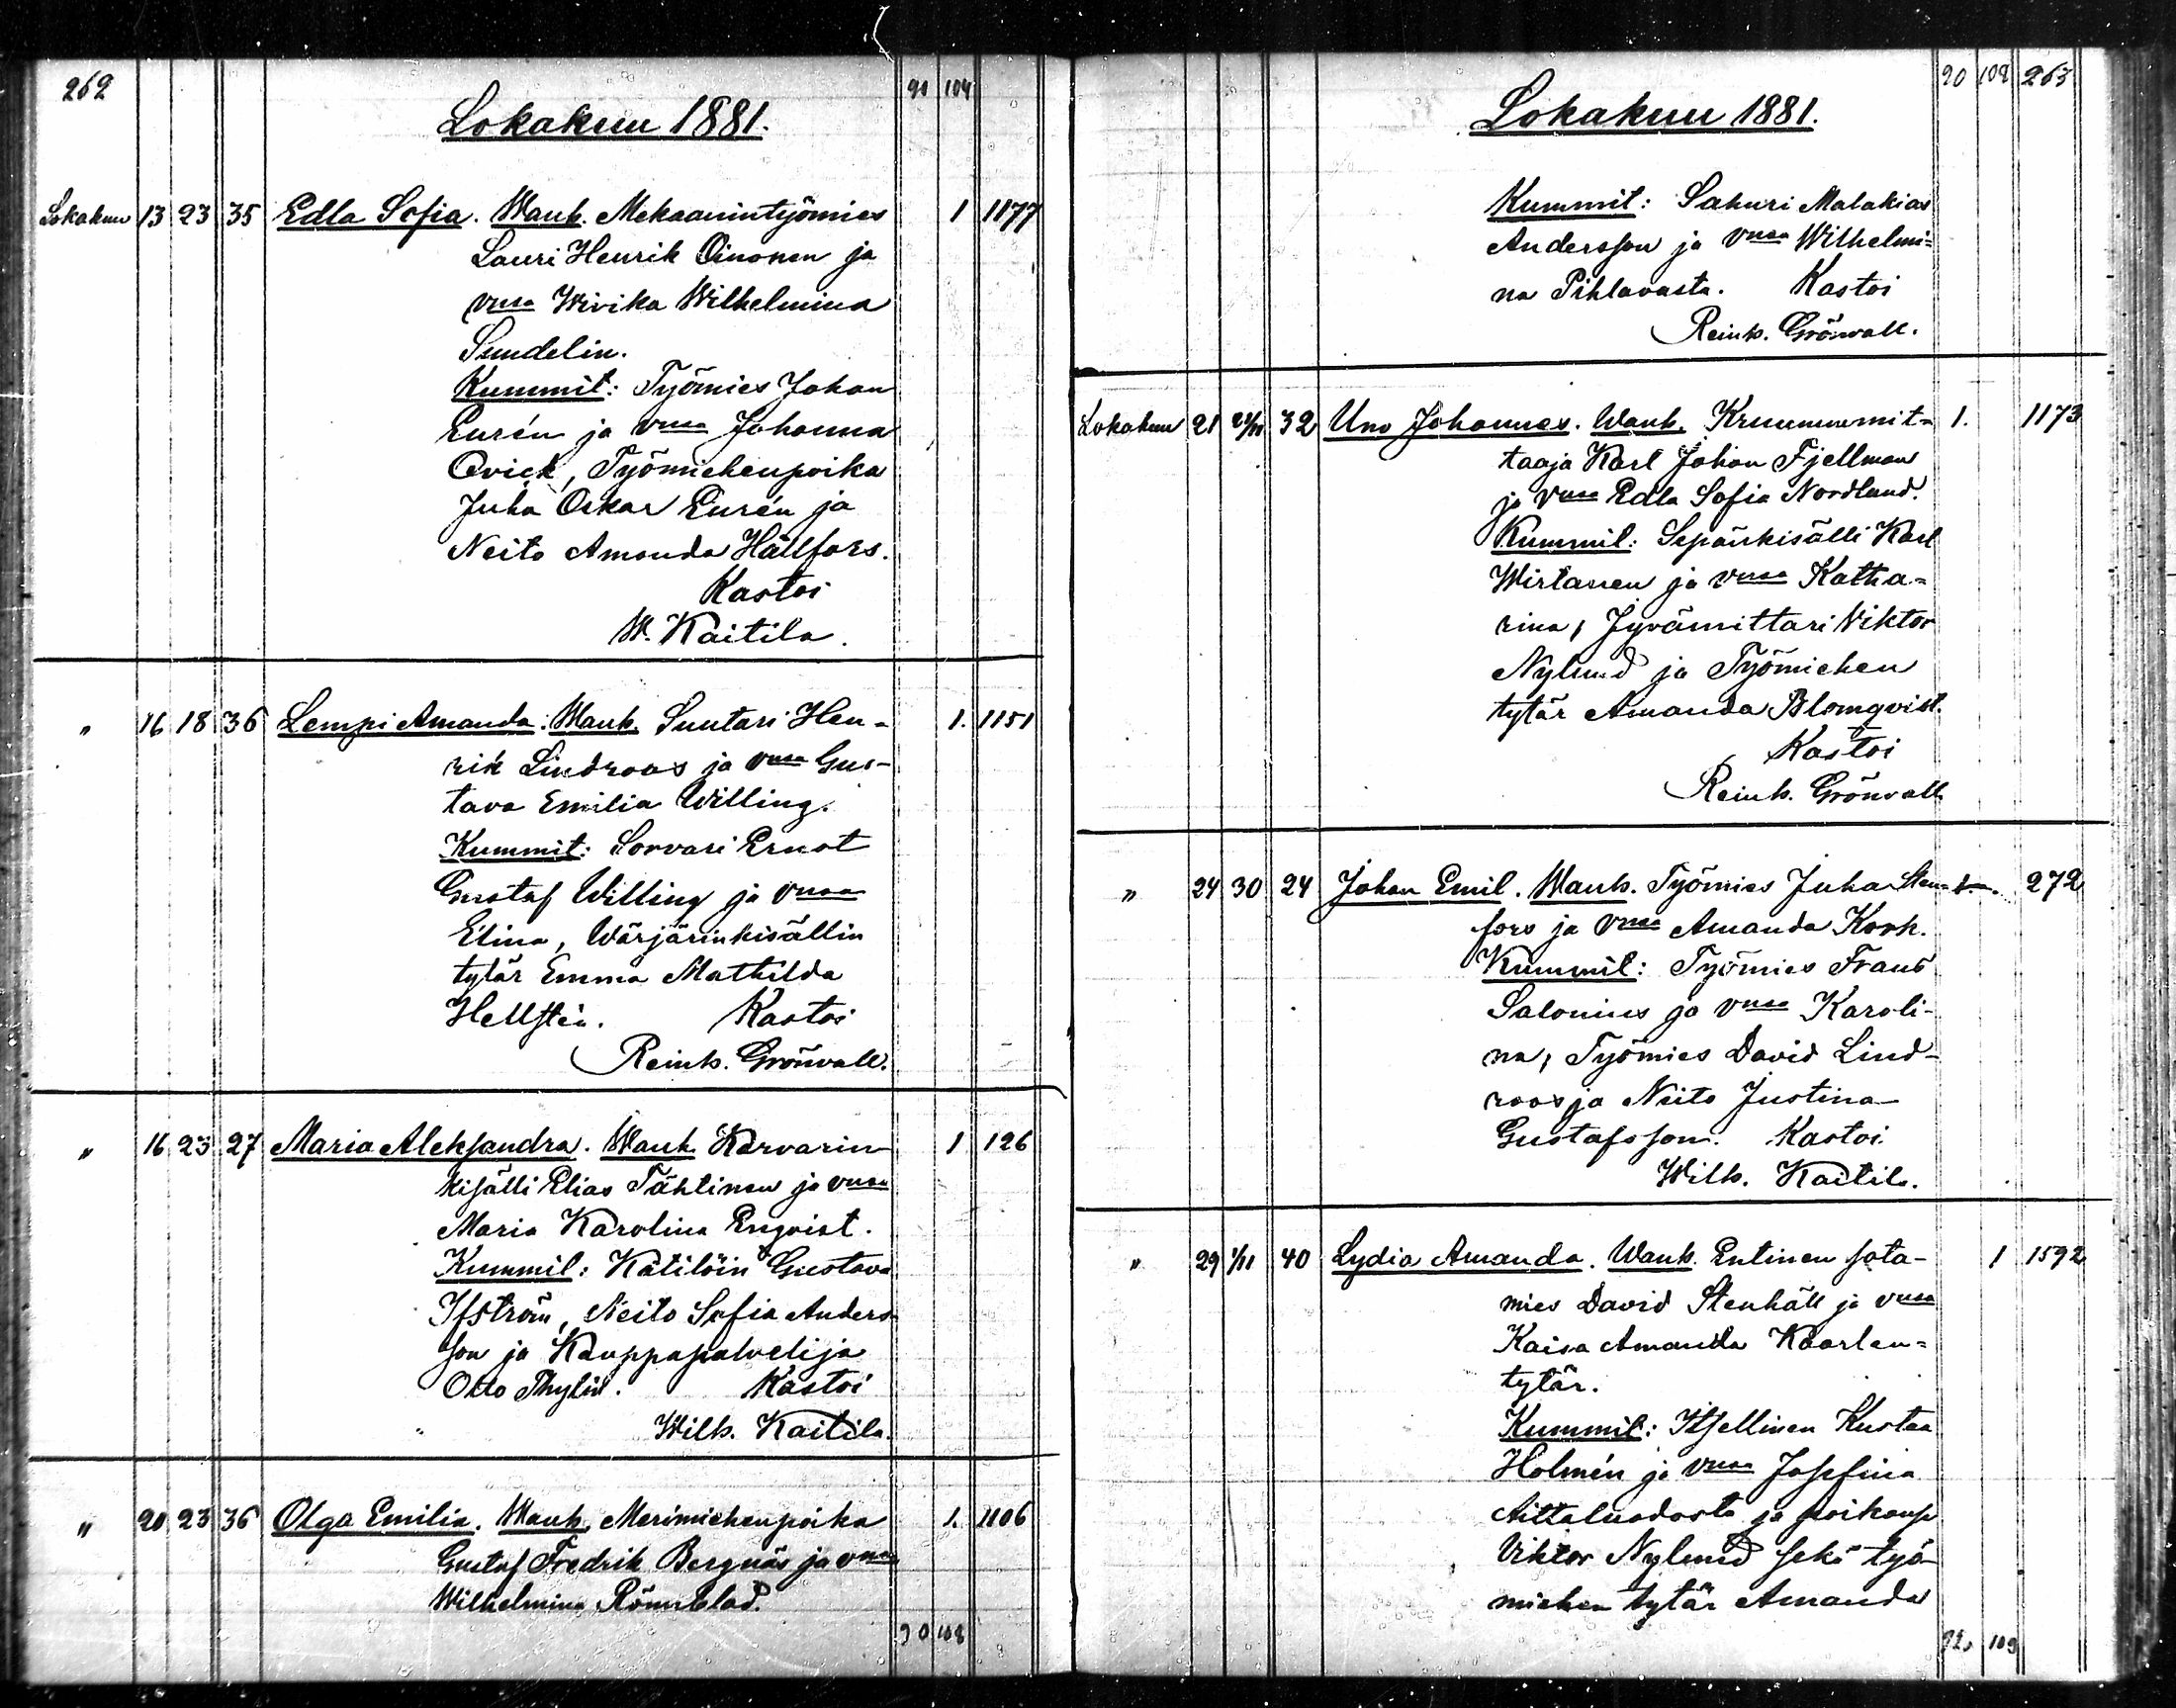 262
90 104
Lokakuu 1881.
Lokakuu 13 23 35 Edla Sofia. Wanh. Mekaanintyömies 1 1177
Lauri Henrik Oinonen ja
vmsa Wivika Wilhelmina
Sundelin.
Kummit: Työmies Johan
Eurén ja vmsa Johanna
Qvick, Työmiehenpoika
Juha Oskar Eurén ja
Neito Amanda Hällfors.
Kastoi
W. Kaitila.
" 16 18 36 Lempi Amanda. Wanh. Suutari Hen-
1. 1151
rik Lindroos ja vmsa Gus-
tava Emilia Willing.
Kummit: Sorvari Ernst
Gustaf Willing ja vmsa
Elina, Wärjärinkisällin
tytär Emma Mathilda
Hellstén. Kastoi
Reinh. Grönvall.
" 16 23 27 Maria Aleksandra. Wanh. Karvarin-
1 126
kisälli Elias Tähtinen ja vmsa
Maria Karolina Enqvist.
Kummit: Kätilöin Gustava
Ifström, Neito Sofia Anders-
son ja Kauppapalvelija
Otto Thylin. Kastoi
Wilh. Kaitila.
" 20 23 36 Olga Emilia. Wanh. Merimiehenpoika 1. 1106
Gustaf Fredrik Bergnäs ja vmsa
Wilhelmina Römblad.
90 108
90 108 263
Lokakuu 1881.
Kummit: Sahuri Malakias
Andersson ja vmsa Wilhelmi-
na Pihlavasta. Kastoi
Reinh. Grönvall.
Lokakuu 21 21/11 32 Uno Johannes. Wanh. Kruununmit- 1. 1173
taaja Karl Johan Fjellman
ja vmsa Edla Sofia Nordlund.
Kummit: Sepänkisälli Karl
Wirtanen ja vmsa Katha-
rina, Jyvämittari Viktor
Nylund ja Työmiehen
tytär Amanda Blomqvist.
Kastoi
Reinh. Grönvall
" 24 30 24 Johan Emil. Wanh. Työmies Juha Sten- 272
fors ja vmsa Amanda Kock.
Kummit: Työmies Frans
Salonius ja vmsa Karoli-
na, Työmies David Lind-
roos ja Neito Justina
Gustafsson. Kastoi
Wilh. Kaitila.
" 29 1/11 40 Lydia Amanda. Wanh. Entinen sota- 1 1592
mies David Stenhäll ja vmsa
Kaisa Amanda Kaarlen-
tytär.
Kummit: Itsellinen Kustaa
Holmén ja vmsa Josefina
Aittaluodosta ja poikansa
Viktor Nylund sekä työ-
miehen tytär Amanda
92 109